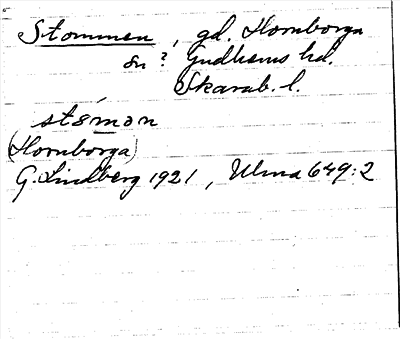 Stommen, gd. Hornborga
sn? Gudhems hd.
Skarab. l.
stómən
(Hornborga)
G. Lindberg 1921, Ulma 649:2